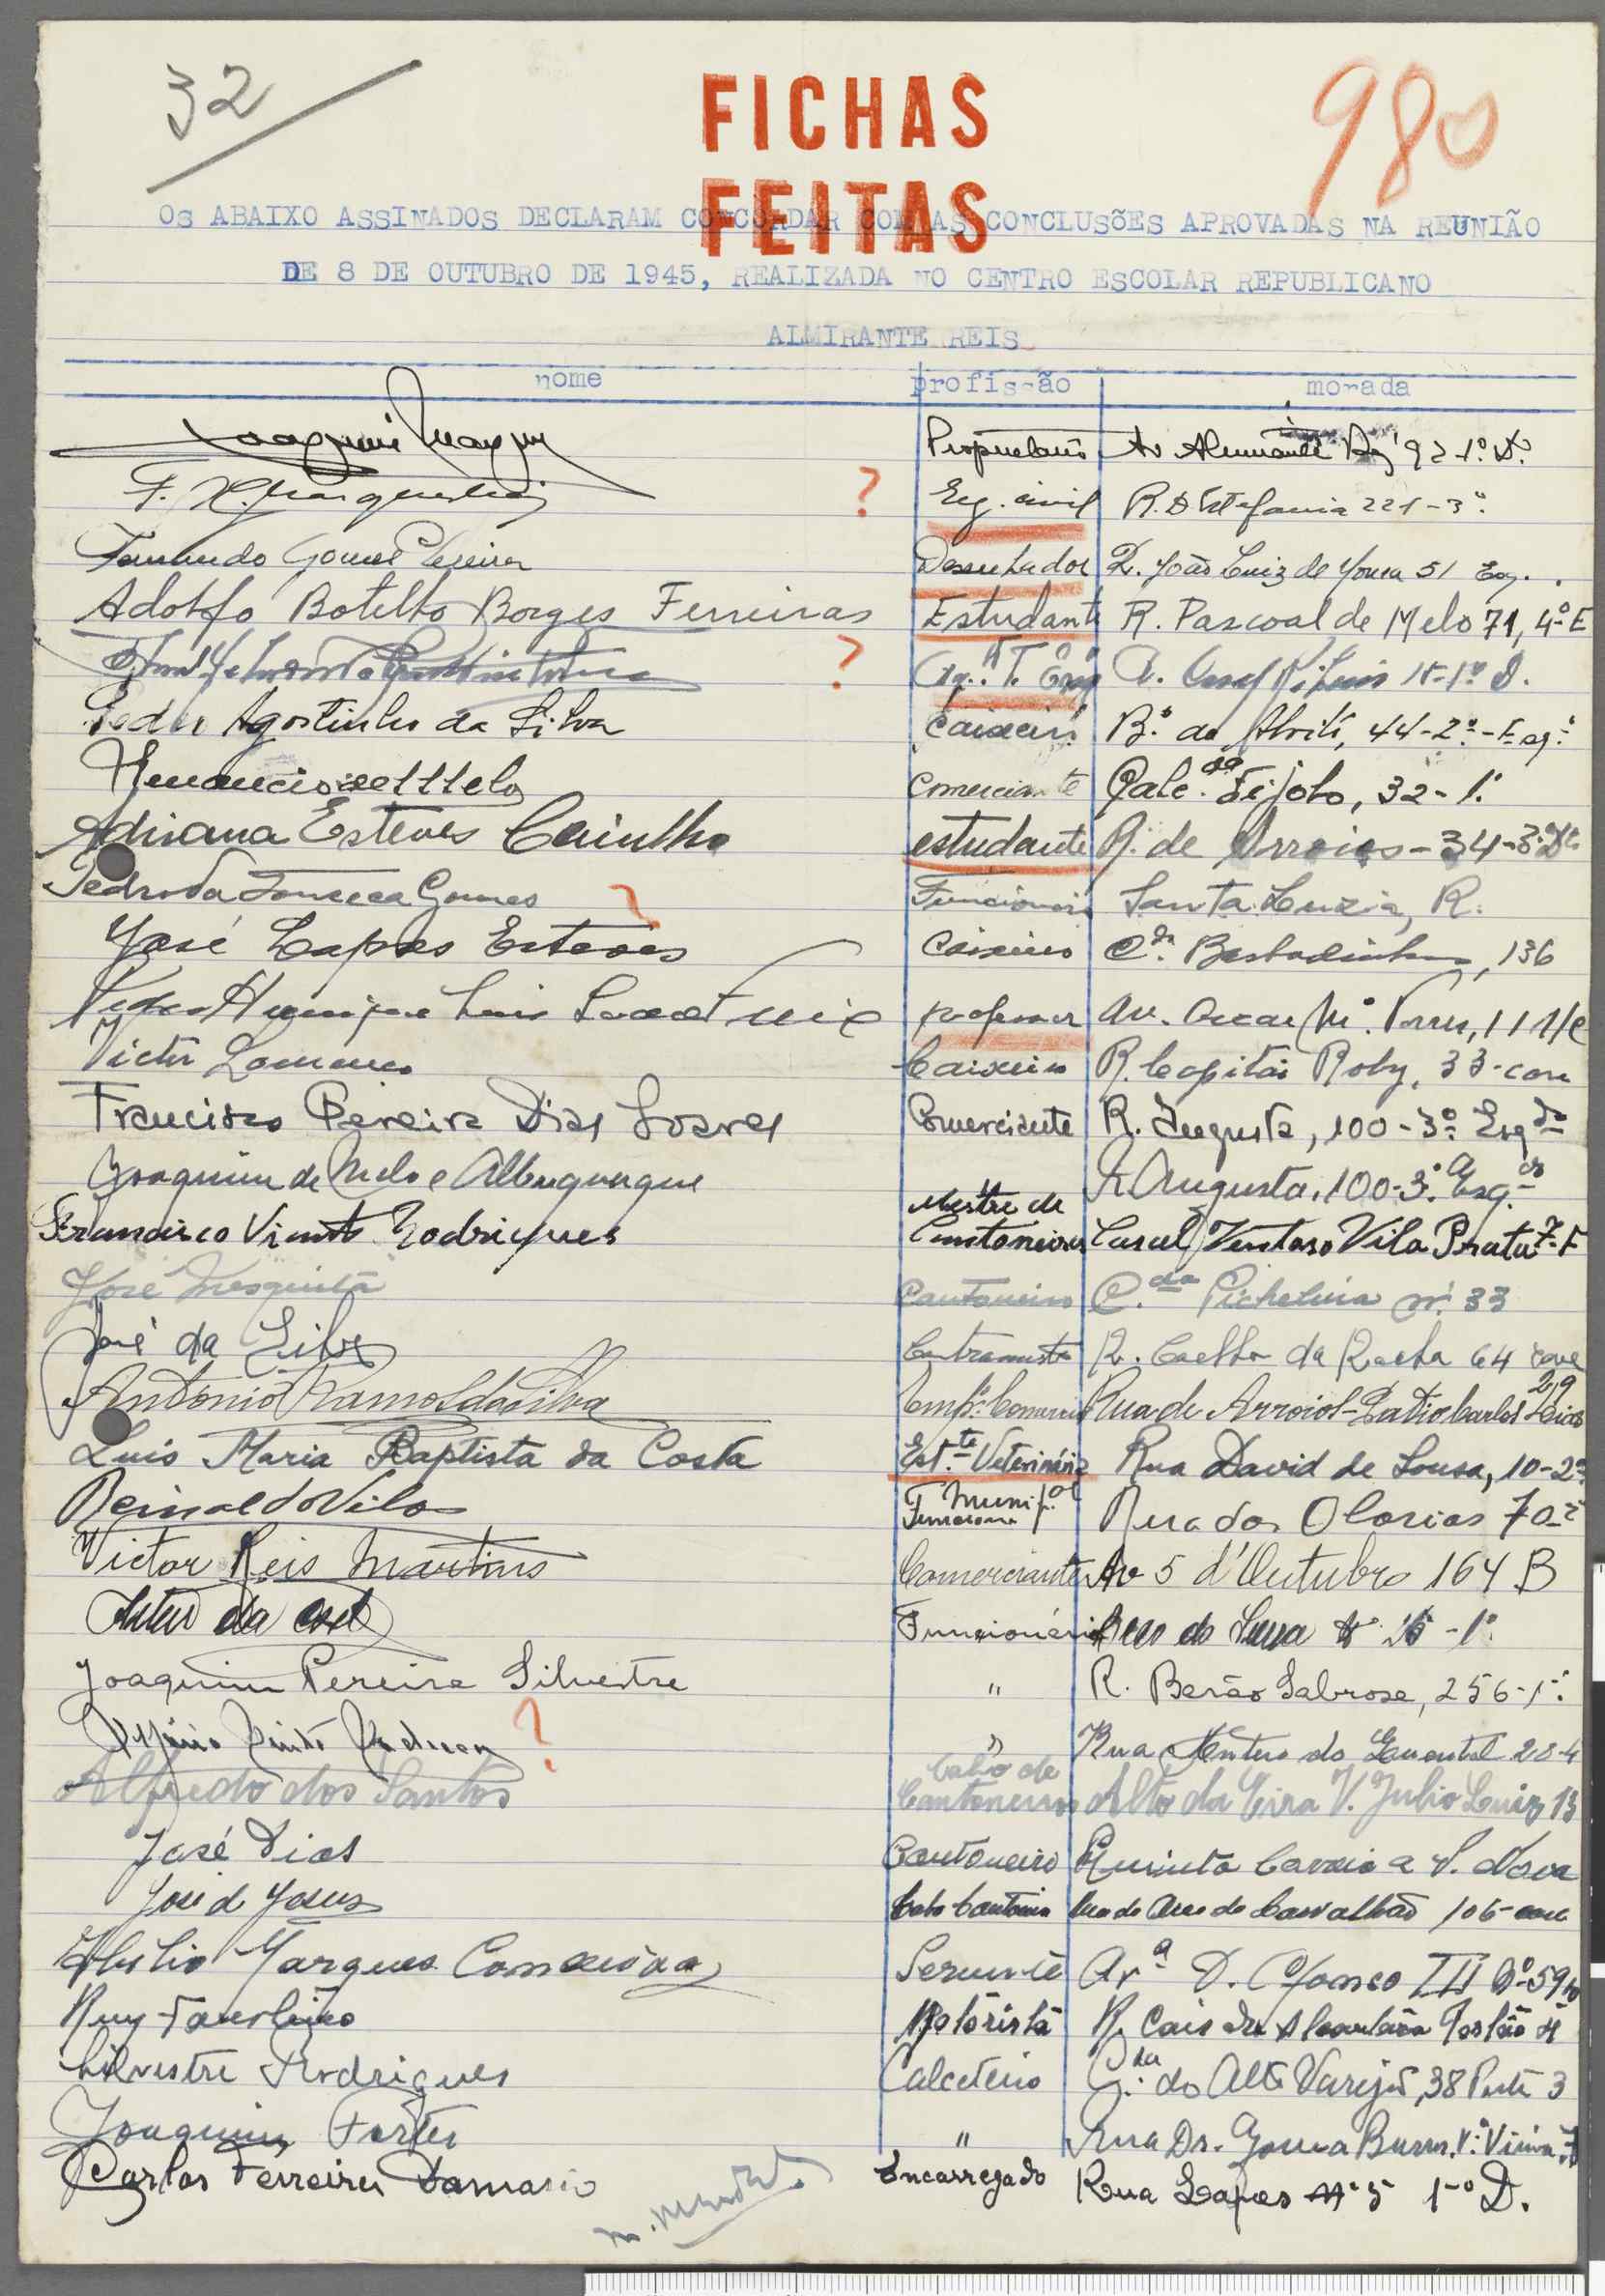 32
FICHAS
FEITAS
980
Os ABAIXO ASSINADOS DECLARAM CONCORDAR COM AS CONCLUSÕES APROVADAS NA REUNIÃO
DE 8 DE OUTUBRO DE 1945, REALIZADA NO CENTRO ESCOLAR REPUBLICANO
ALMIRANTE REIS
nome profissão morada
Joaquim Proprietario Av Almirante Reis 92-1º. Dº.
F. X. ? Eng. civil R. D. Estefania 221-3º.
Fernando Gomes Pereira Desenhador R. João Luiz de Sousa 51 Esq.
Adolfo Botelho Borges Ferreiras Estudante R. Pascoal de Melo 71, 4º E
? Ag. T. Eng 15-1º D.
Pedro Agostinho da Silva Caixeiro 44-2º.-Esq.º
Venancio de Mello Comerciante Calc.da Feijoto, 32-1º
Adriana Esteves Coinlho estudante R. de Arroios-34-3º. Dto
Pedro da Fonseca Gomes ? Funcionario Santa Luzia, R.
José Lapas Esteves Caixeiro Cda. Barbadinhos, 136
Henrique Luis professor Av. Oscar M. Torres, 11 1/c
Victor Lourenço Caixeiro R. Capitão Roby, 33-cave
Francisco Pereira Dias Soares Comerciante R. Augusta, 100-3º Esqdo
Joaquim de Melo e Albuquerque R. Augusta, 100-3º. Esq.do
Francisco Vicente Rodrigues Mestre de Cantoneiros Casal Ventoso Vila Prata 7-F
José Mesquita Cantoneiro C.da Picheleira nº. 33
José da Silva Contramestre R. Coelho da Rocha 64 cave
Antonio Ramos da Silva Empº. Comercio Rua de Arroios-Patio Carlos Dias 219
Luis Maria Baptista da Costa Est.te Veterinária Rua David de Sousa, 10-2º.
Reinaldo Vila Funcionario Munip.al Rua das Olarias 70-2º
Victor Reis Martins Comerciante Av 5 d'Outubro 164 B
Artur da Funcionário -1º
Joaquim Pereira Silvestre " R. Barão Sabrosa, 256-1º.
Mário Pinto ? " Rua Antero do Quental 28-4
Alfredo dos Santos Cabo de Cantoneiros Alto da Eira V. Julio Luiz 13
José Dias Cantoneiro Quinta
José d Jesus Cabo Cantoneiro Rua do Arco do Carvalhão 106-cave
Abilio Marques Servente Avª D. Afonso III Nº-59
Ruy Motorista R. Cais de Alcantara Postão 4
Silvestre Rodrigues Calceteiro C.da do Alto Varejão, 38 Porta 3
Joaquim Fortes " Rua Dr. Gama Barros
Carlos Ferreira Damasio Encarregado Rua Lapas nº 5 1º D.